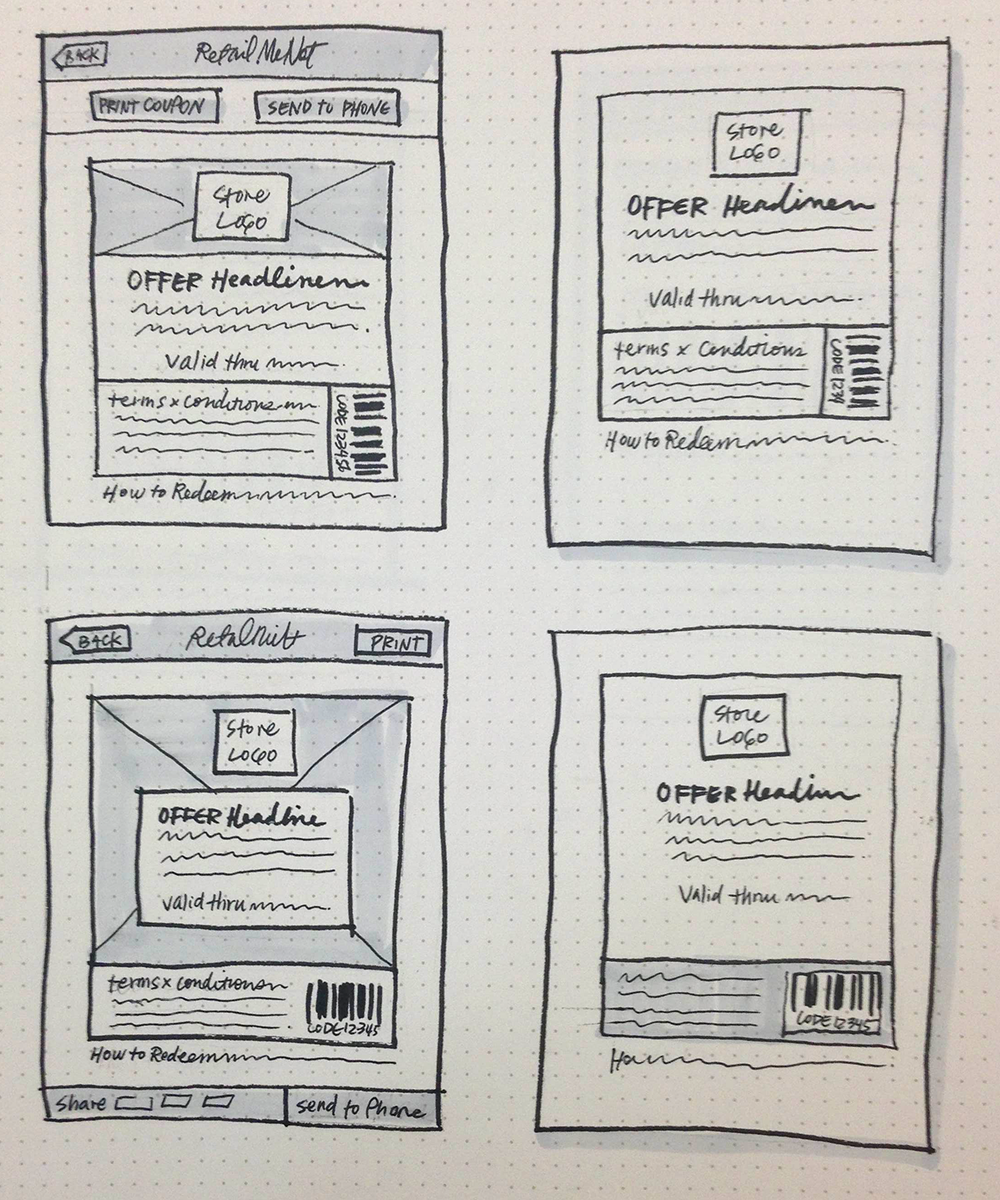 BACK
RetailMeNot
PRINT COUPON
SEND to PHONE
Store
LOGO
OFFER Headline
Valid thru
terms x conditions
CODE 123456
How to Redeem
Store
LOGO
OFFER Headline
Valid thru
terms x Conditions
CODE 1234
How to Redeem
BACK
PRINT
Store
LOGO
OFFER Headline
Valid thru
terms x conditions
CODE 12345
How to Redeem
Share
Send to Phone
Store
LOGO
OFFER Headline
Valid thru
CODE 12345